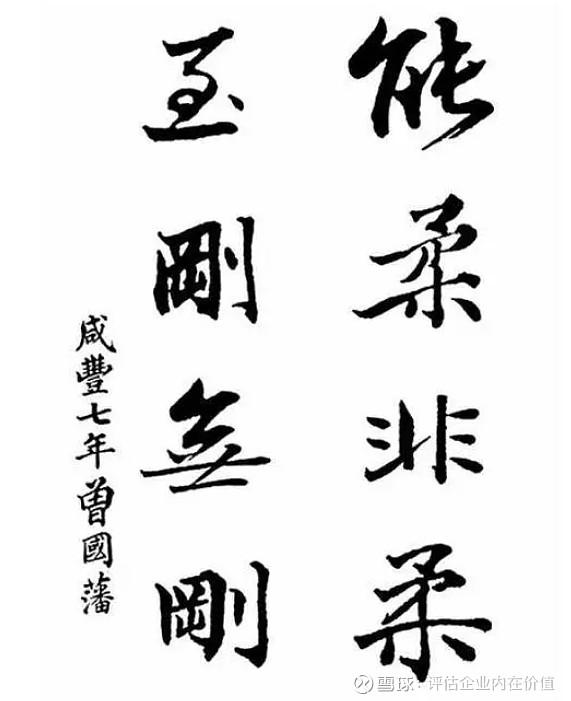 能柔非柔
至剛無剛
咸豐七年曾國藩
雪球：评估企业内在价值